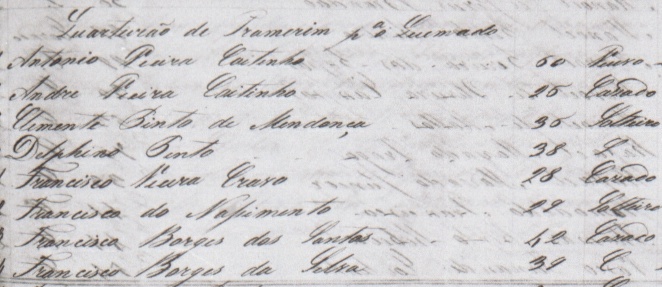 Quarteirão de Tramerim pª o Queimado
Antonio Vieira Caitinho 50 Viuvo
Andre Vieira Caitinho 25 Cazado
Clemente Pinto de Mendonça 35 Solteiro
Delphino Pinto 38 S.
Francisco Vieira Cravo 28 Cazado
Francisco do Nascimento 29 Solteiro
Francisco Borges dos Santos 42 Cazado
Francisco Borges da Silva 39 C.